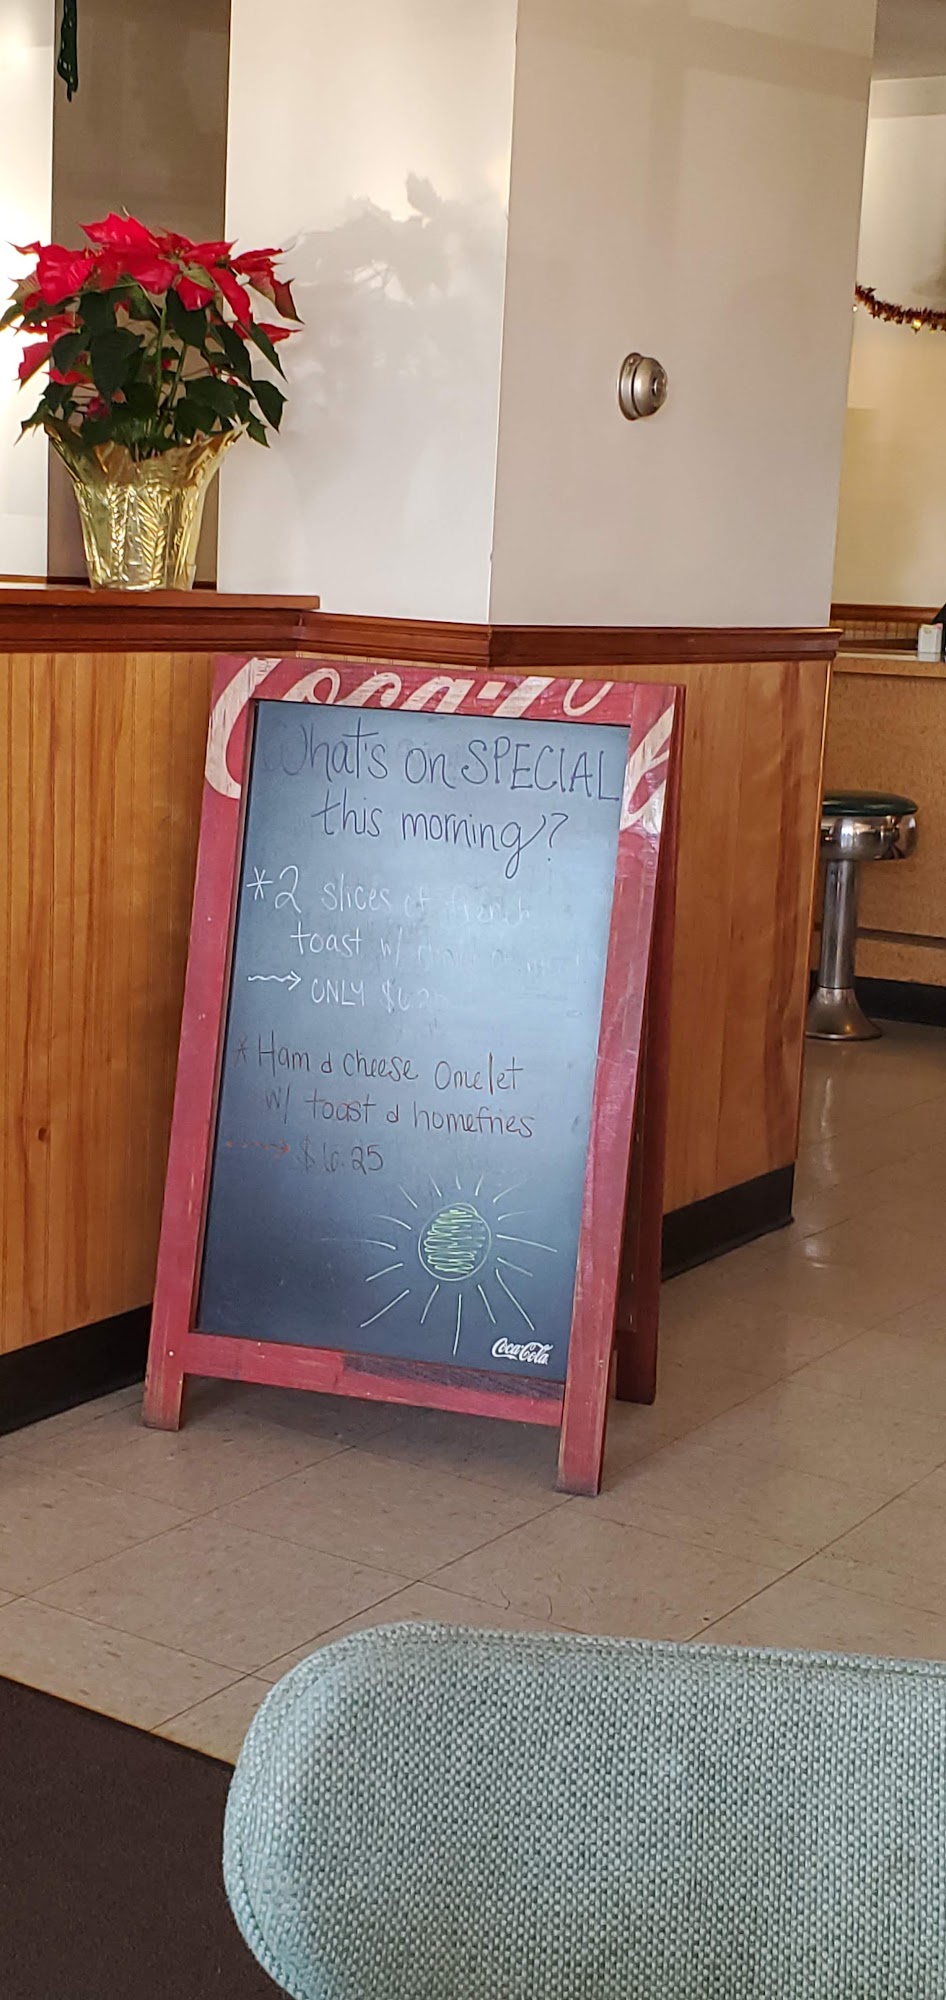 Coca-Cola
What's on SPECIAL
this morning?
* 2 slices of french
toast w/
ONLY $6.25
* Ham & cheese Omelet
w/ toast & homefries
$6.25
Coca-Cola